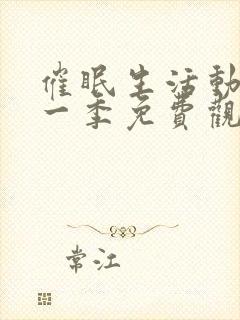 催眠生活動
一季免費觀
常江